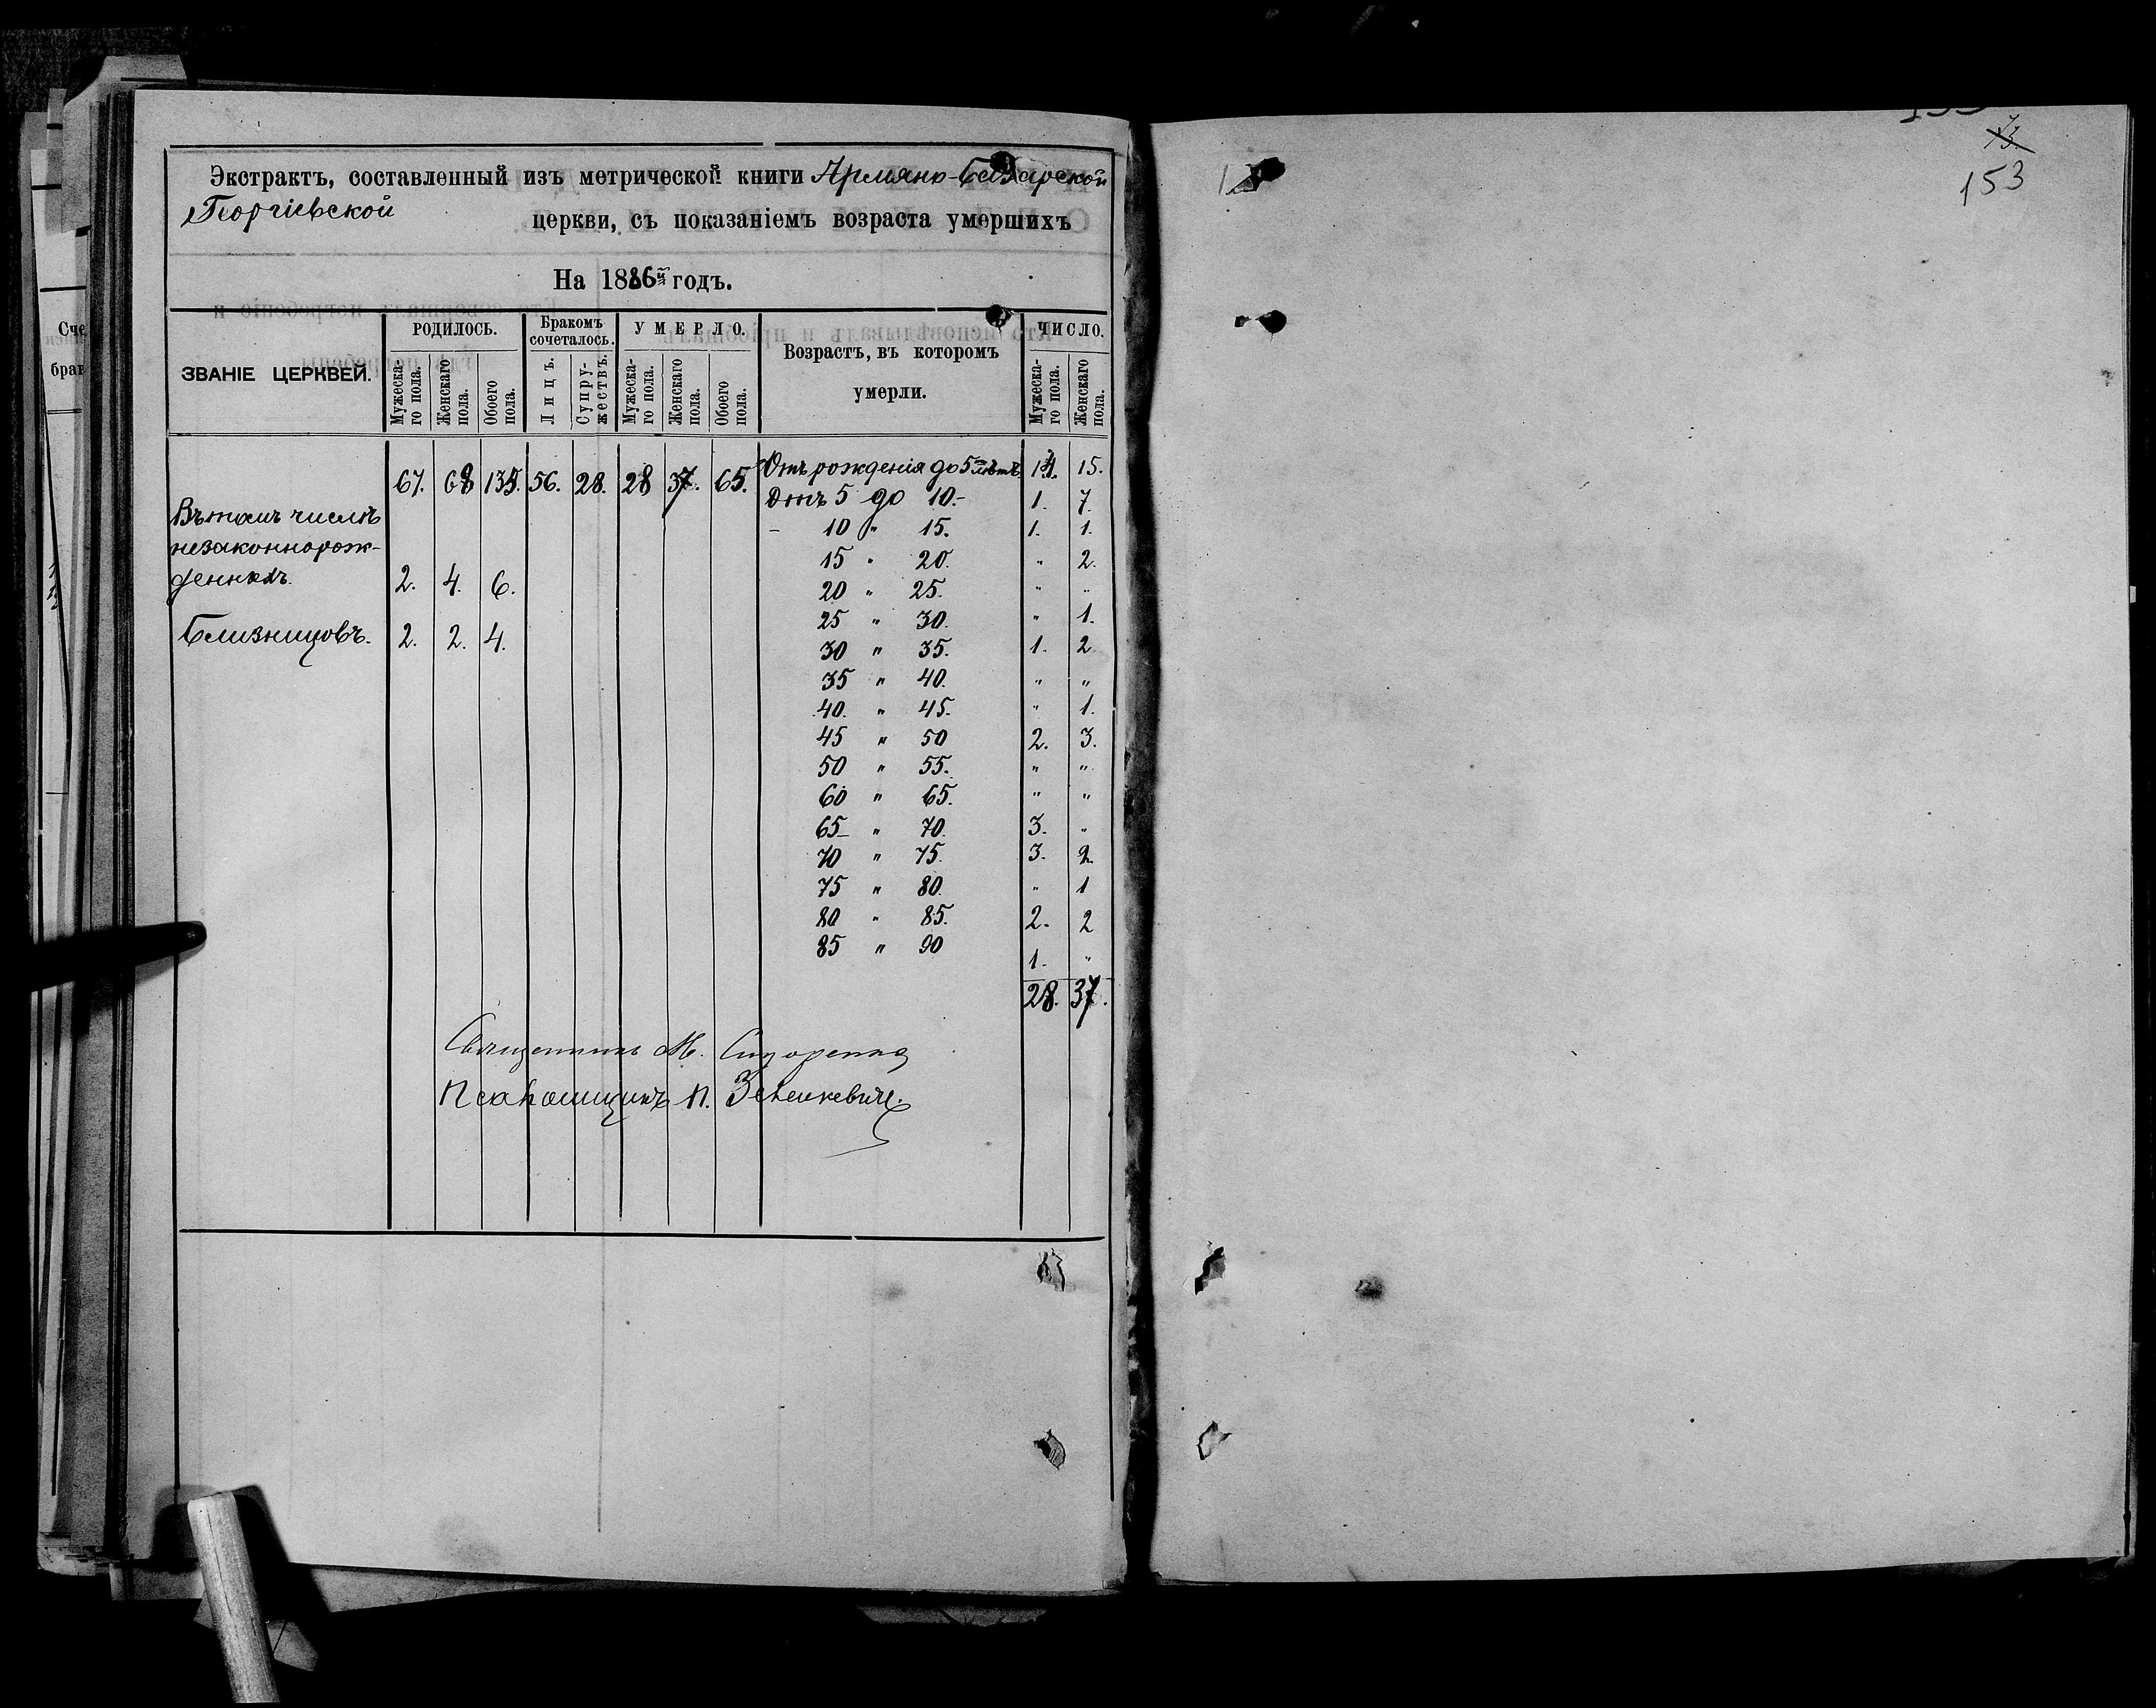 Экстрактъ, составленный изъ метрической книги Армяно-Базарской
Георгіевской
церкви, съ показаніемъ возраста умершихъ
На 1886й годъ.
ЗВАНІЕ ЦЕРКВЕЙ.
РОДИЛОСЬ.
Мужеска-го пола.
Женскаго пола.
Обоего пола.
Бракомъ сочеталось.
Лицъ.
Супру-жествъ.
УМЕРЛО.
Мужеска-го пола.
Женскаго пола.
Обоего пола.
Возрастъ, въ которомъ умерли.
ЧИСЛО.
Мужеска-го пола.
Женскаго пола.
67. 68 135. 56. 28. 28 37. 65. Отъ рожденія до 5 лѣтъ 14. 15.
Отъ 5 до 10.- 1. 7.
Въ томъ числѣ
- 10 " 15. 1. 1.
незаконнорож-
15 " 20. " 2.
денныхъ. 2. 4. 6.
20 " 25. " "
25 " 30. " 1.
Близнецовъ. 2. 2. 4.
30 " 35. 1. 2.
35 " 40. " "
40. " 45. " 1.
45 " 50 2. 3.
50 " 55. " "
60 " 65. " "
65 " 70. 3. "
70 " 75. 3. 2.
75 " 80. " 1
80 " 85. 2. 2
85 " 90 1. "
28. 37.
Священникъ М. Сидоренко
Псаломщикъ П. Зеленкевичъ.
Сче
брак
73.
153